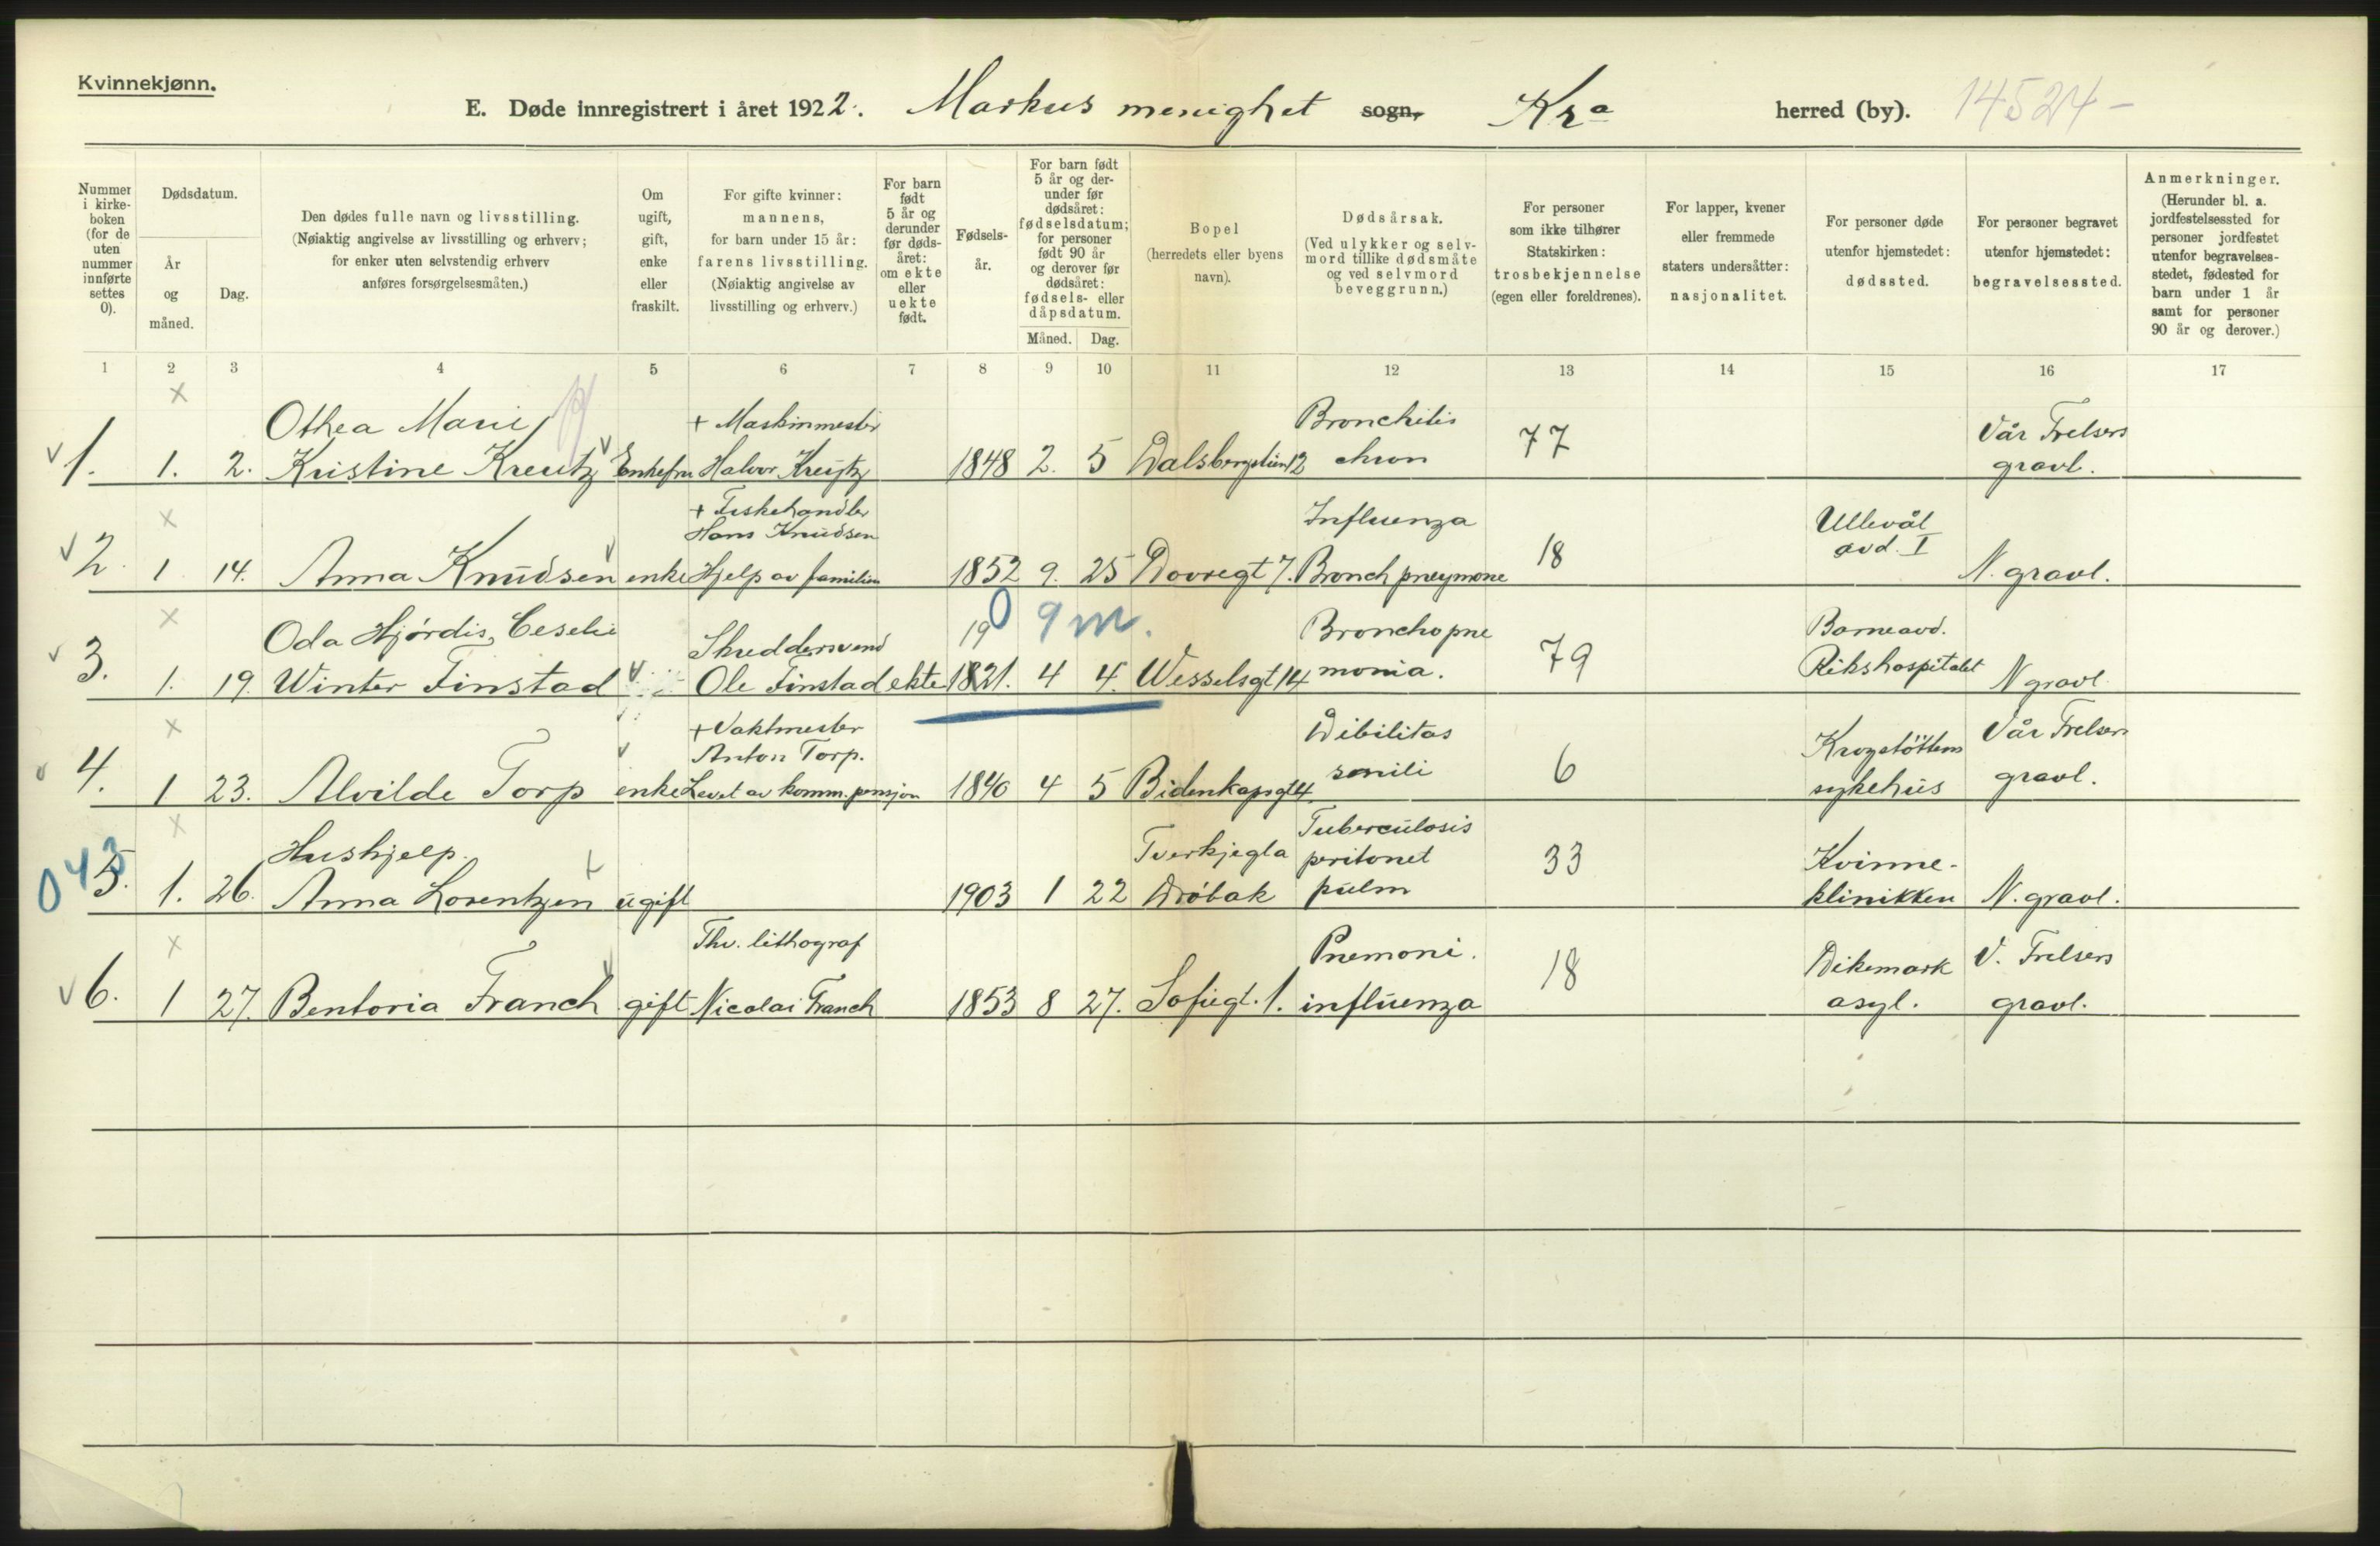 Kvinnekjønn.
E. Døde innregistrert i året 1922. Markus menighet sogn, Kra herred (by). 14524-
Nummer i kirkeboken (for de uten nummer innførte settes 0).
Dødsdatum.
År og måned.
Dag.
Den dødes fulle navn og livsstilling. (Nøiaktig angivelse av livsstilling og erhverv; for enker uten selvstendig erhverv anføres forsørgelsesmåten.)
Om ugift, gift, enke eller fraskilt.
For gifte kvinner: mannens, for barn under 15 år: farens livsstilling. (Nøiaktig angivelse av livsstilling og erhverv.)
For barn født 5 år og derunder før dødsåret: om ekte eller uekte født.
Fødselsår.
For barn født 5 år og derunder før dødsåret: fødselsdatum; for personer født 90 år og derover før dødsåret: fødsels- eller dåpsdatum.
Måned. Dag.
Bopel (herredets eller byens navn).
Dødsårsak. (Ved ulykker og selvmord tillike dødsmåte og ved selvmord beveggrunn.)
For personer som ikke tilhører Statskirken: trosbekjennelse (egen eller foreldrenes).
For lapper, kvener eller fremmede staters undersåtter: nasjonalitet.
For personer døde utenfor hjemstedet: dødssted.
For personer begravet utenfor hjemstedet: begravelsessted.
Anmerkninger. (Herunder bl. a. jordfestelsessted for personer jordfestet utenfor begravelsesstedet, fødested for barn under 1 år samt for personer 90 år og derover.)
1 2 3 4 5 6 7 8 9 10 11 12 13 14 15 16 17
x
Othea Marie + Maskinmester Bronchitis 77 Vår Frelsers
v 1. 1. 2. Kristine Kreutz Enkefru Halvor Kreutz 1848 2. 5 Dalsbergstien 12 chron gravl.
x
+ Fiskehandler Influenza Ullevål
Hans Knudsen 18 avd. I
v 2. 1 14. Anna Knudsen enke Hjelp av familien 1852 9. 25 Dovregt 7. Bronch pneymone N. gravl.
x 0 9 m.
Oda Hjørdis, Ceselie Skreddersvend 19 Bronchopne 79 Barneavd.
v 3. 1. 19. Winter Finstad v Ole Finstad ekte 1821. 4 4. Wesselsgt 14 monia. Rikshospitalet N gravl
x
+ Vaktmester Dibilitas Vår Frelsers
Anton Torp. Krogstøttens
v 4. 1 23. Alvilde Torp enke Levet av komm. pensjon 1840 4 5 Bidenkapsgt 4. senili 6 sykehus gravl.
x
Tuberculosis
043 Hushjelp. Tverkjegla peritonet 33 Kvinne-
5. 1. 26. Anna Lorentzen ugift 1903 1 22 Drøbak pulm klinikken N. gravl.
x
Thv. lithograf Pnemoni. 18 Dikemark V. Frelsers
v 6. 1 27. Bentoria Franch gift Nicolai Franch 1853 8 27. Sofiegt. 1. influenza asyl. gravl.